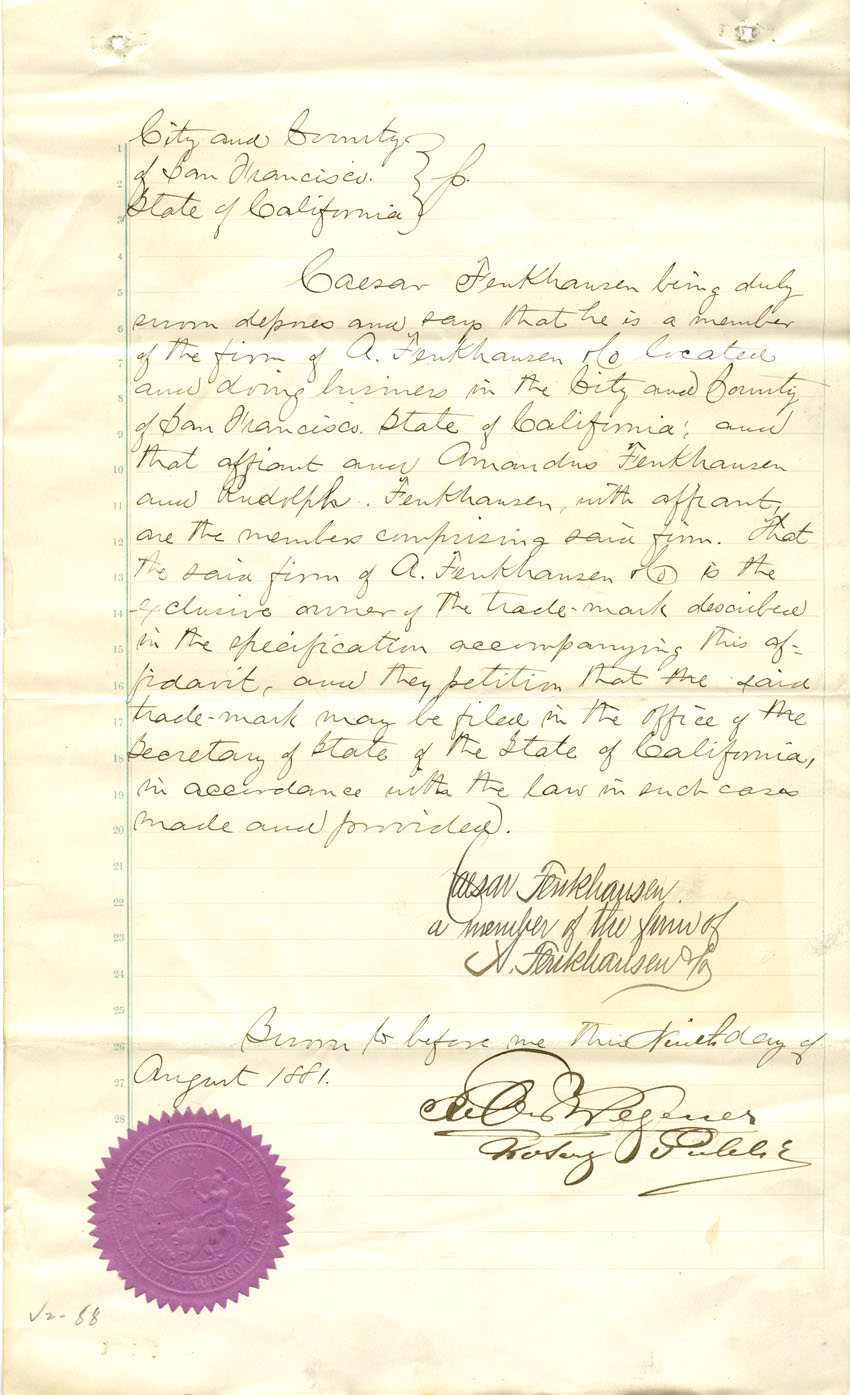 City and County
of San Francisco. } ss.
State of California
Caesar Fenkhausen being duly
sworn deposes and says that he is a member
of the firm of A. Fenkhausen & Co located
and doing business in the City and County
of San Francisco. State of California; and
that affiant and Amandus Fenkhausen
and Rudolph. Fenkhausen, with affiant,
are the members comprising said firm. That
the said firm of A. Fenkhausen & Co is the
exclusive owner of the trade-mark described
in the specification accompanying this af=
fidavit, and they petition that the said
trade-mark may be filed in the office of the
Secretary of State of the State of California,
in accordance with the law in such cases
made and provided.
Caesar Fenkhausen.
a member of the firm of
A. Fenkhausen & Co
Sworn to before me this Ninth day of
August 1881.
Wegener
Notary Public
WEGENER NOTARY PUBLIC
SAN FRANCISCO CAL.
V2-88
1
2
3
4
5
6
7
8
9
10
11
12
13
14
15
16
17
18
19
20
21
22
23
24
25
26
27
28